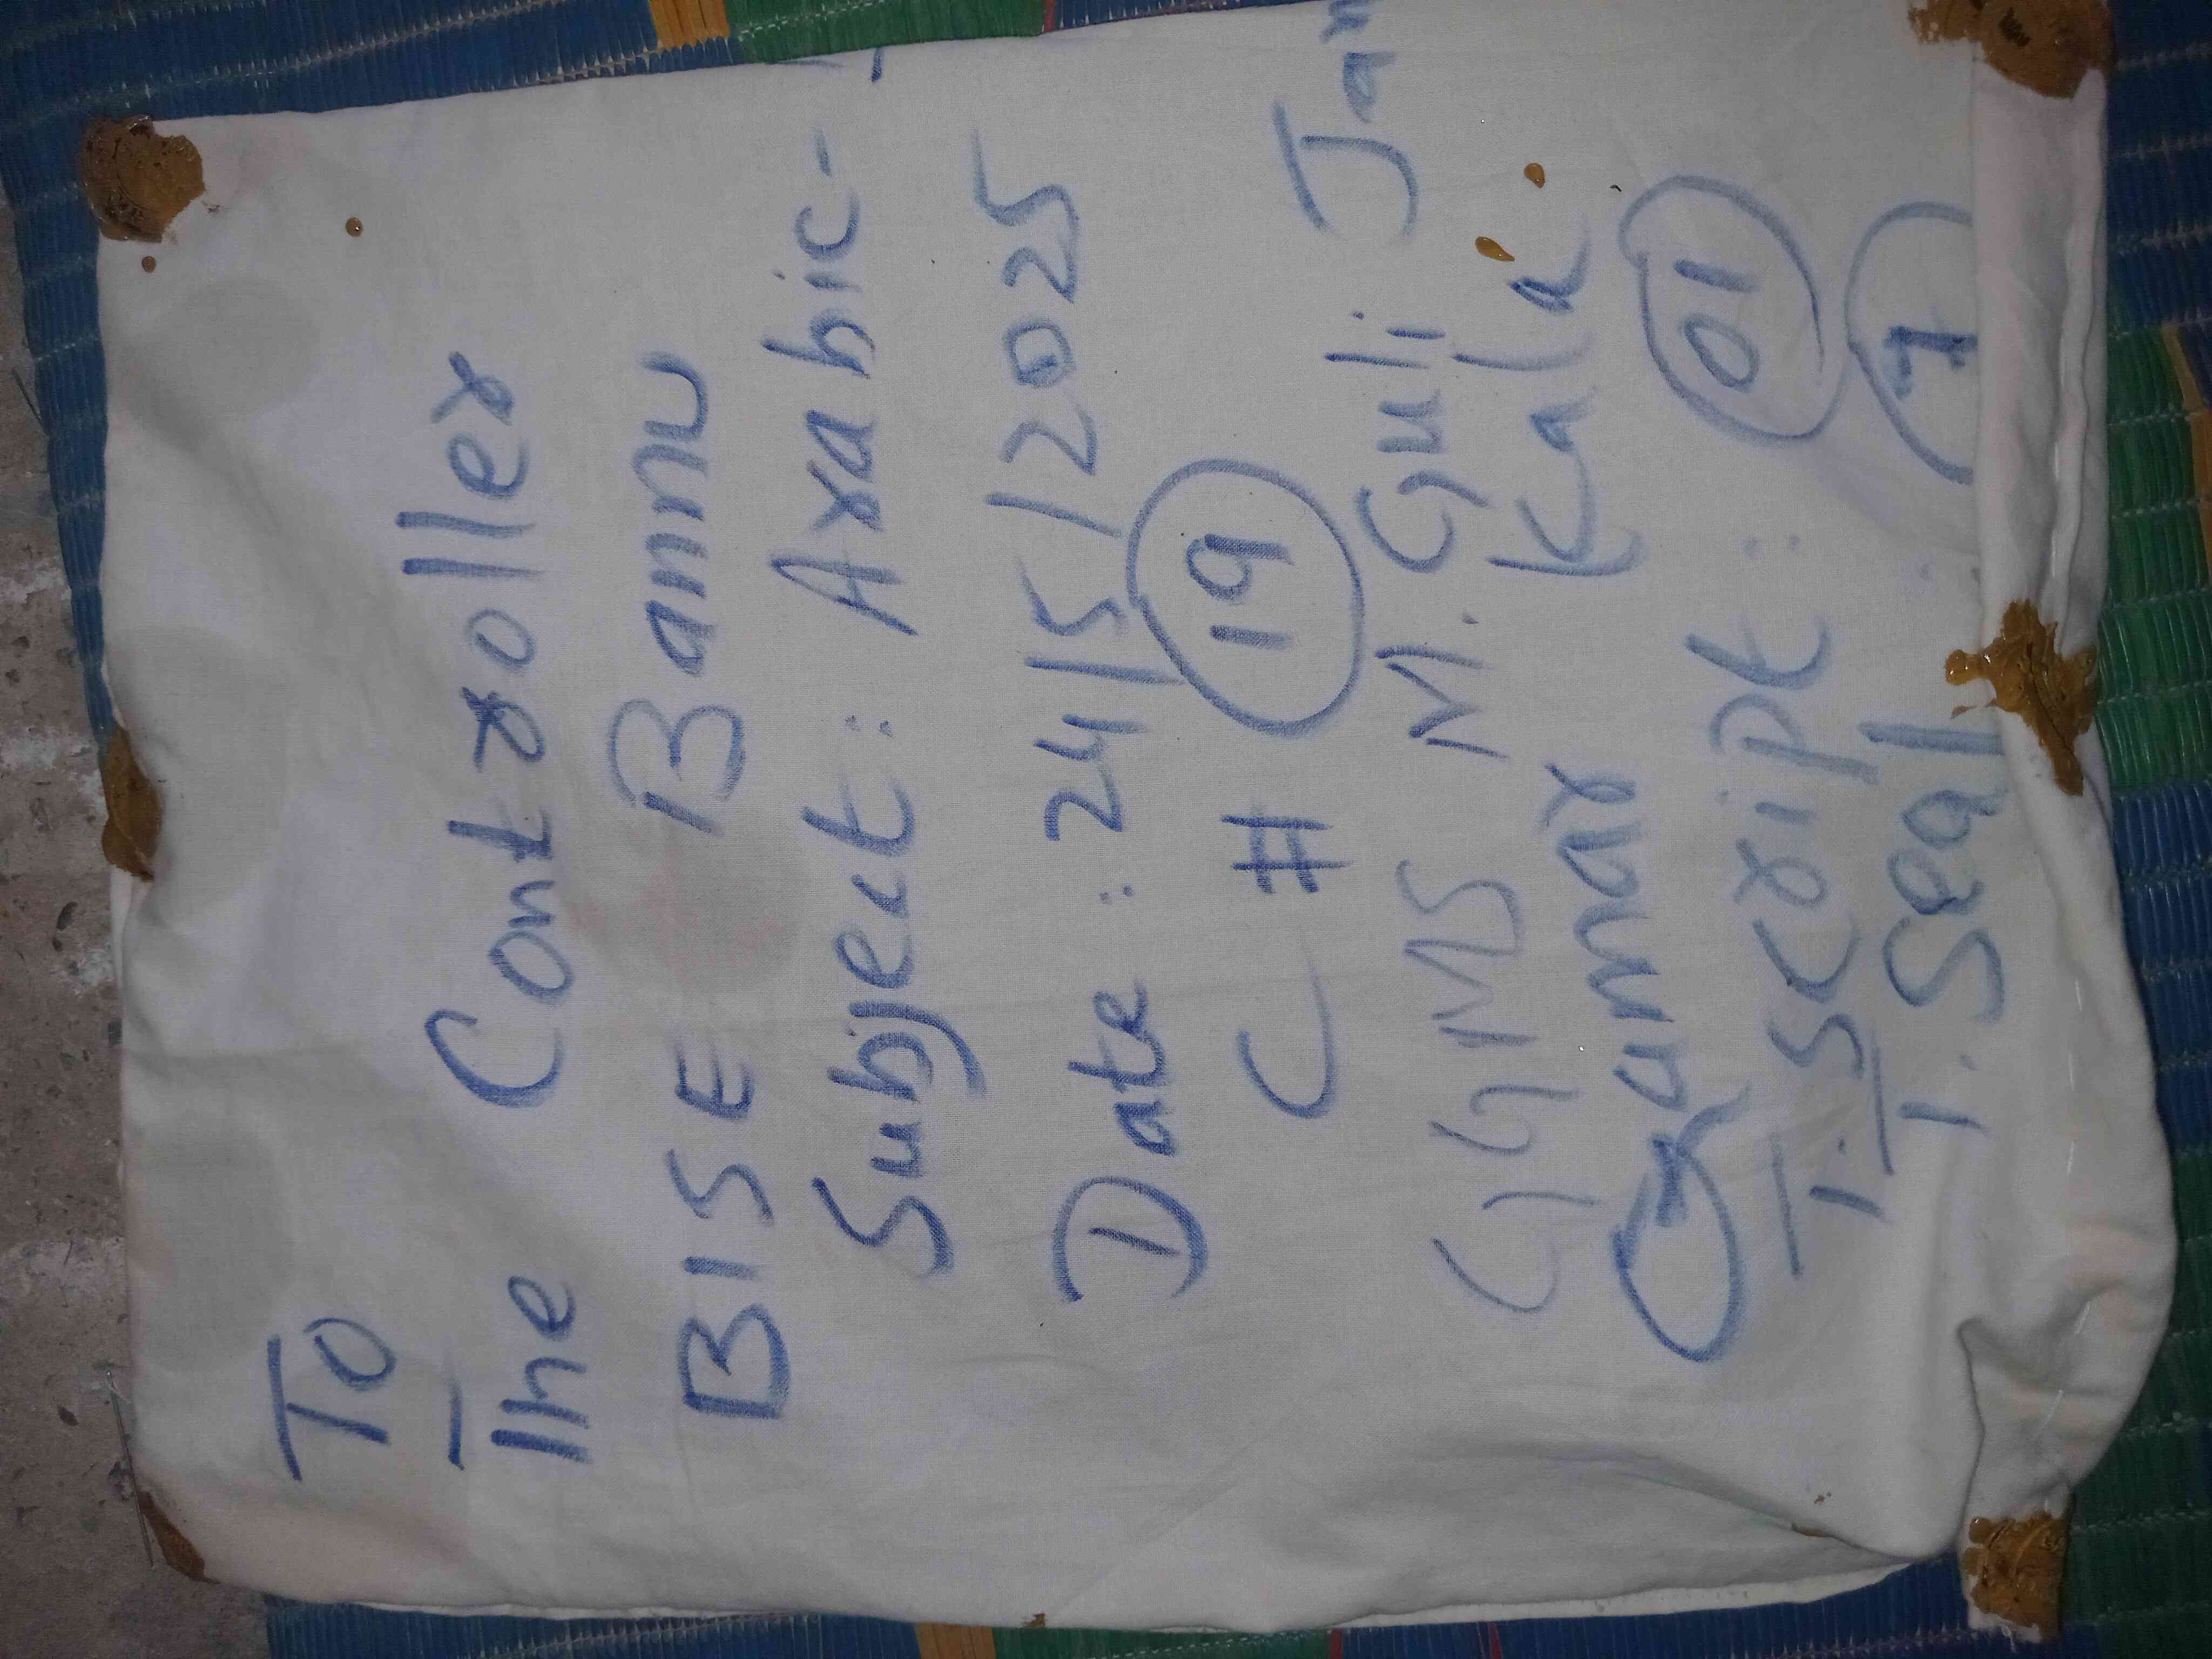 To
The Controller
BISE Bannu
Subject: Arabic-
Date: 24/5/2025
C # 19
GHMS M. Guli Jan
Qamar Kala
T. Script: 01
T. Seal 7